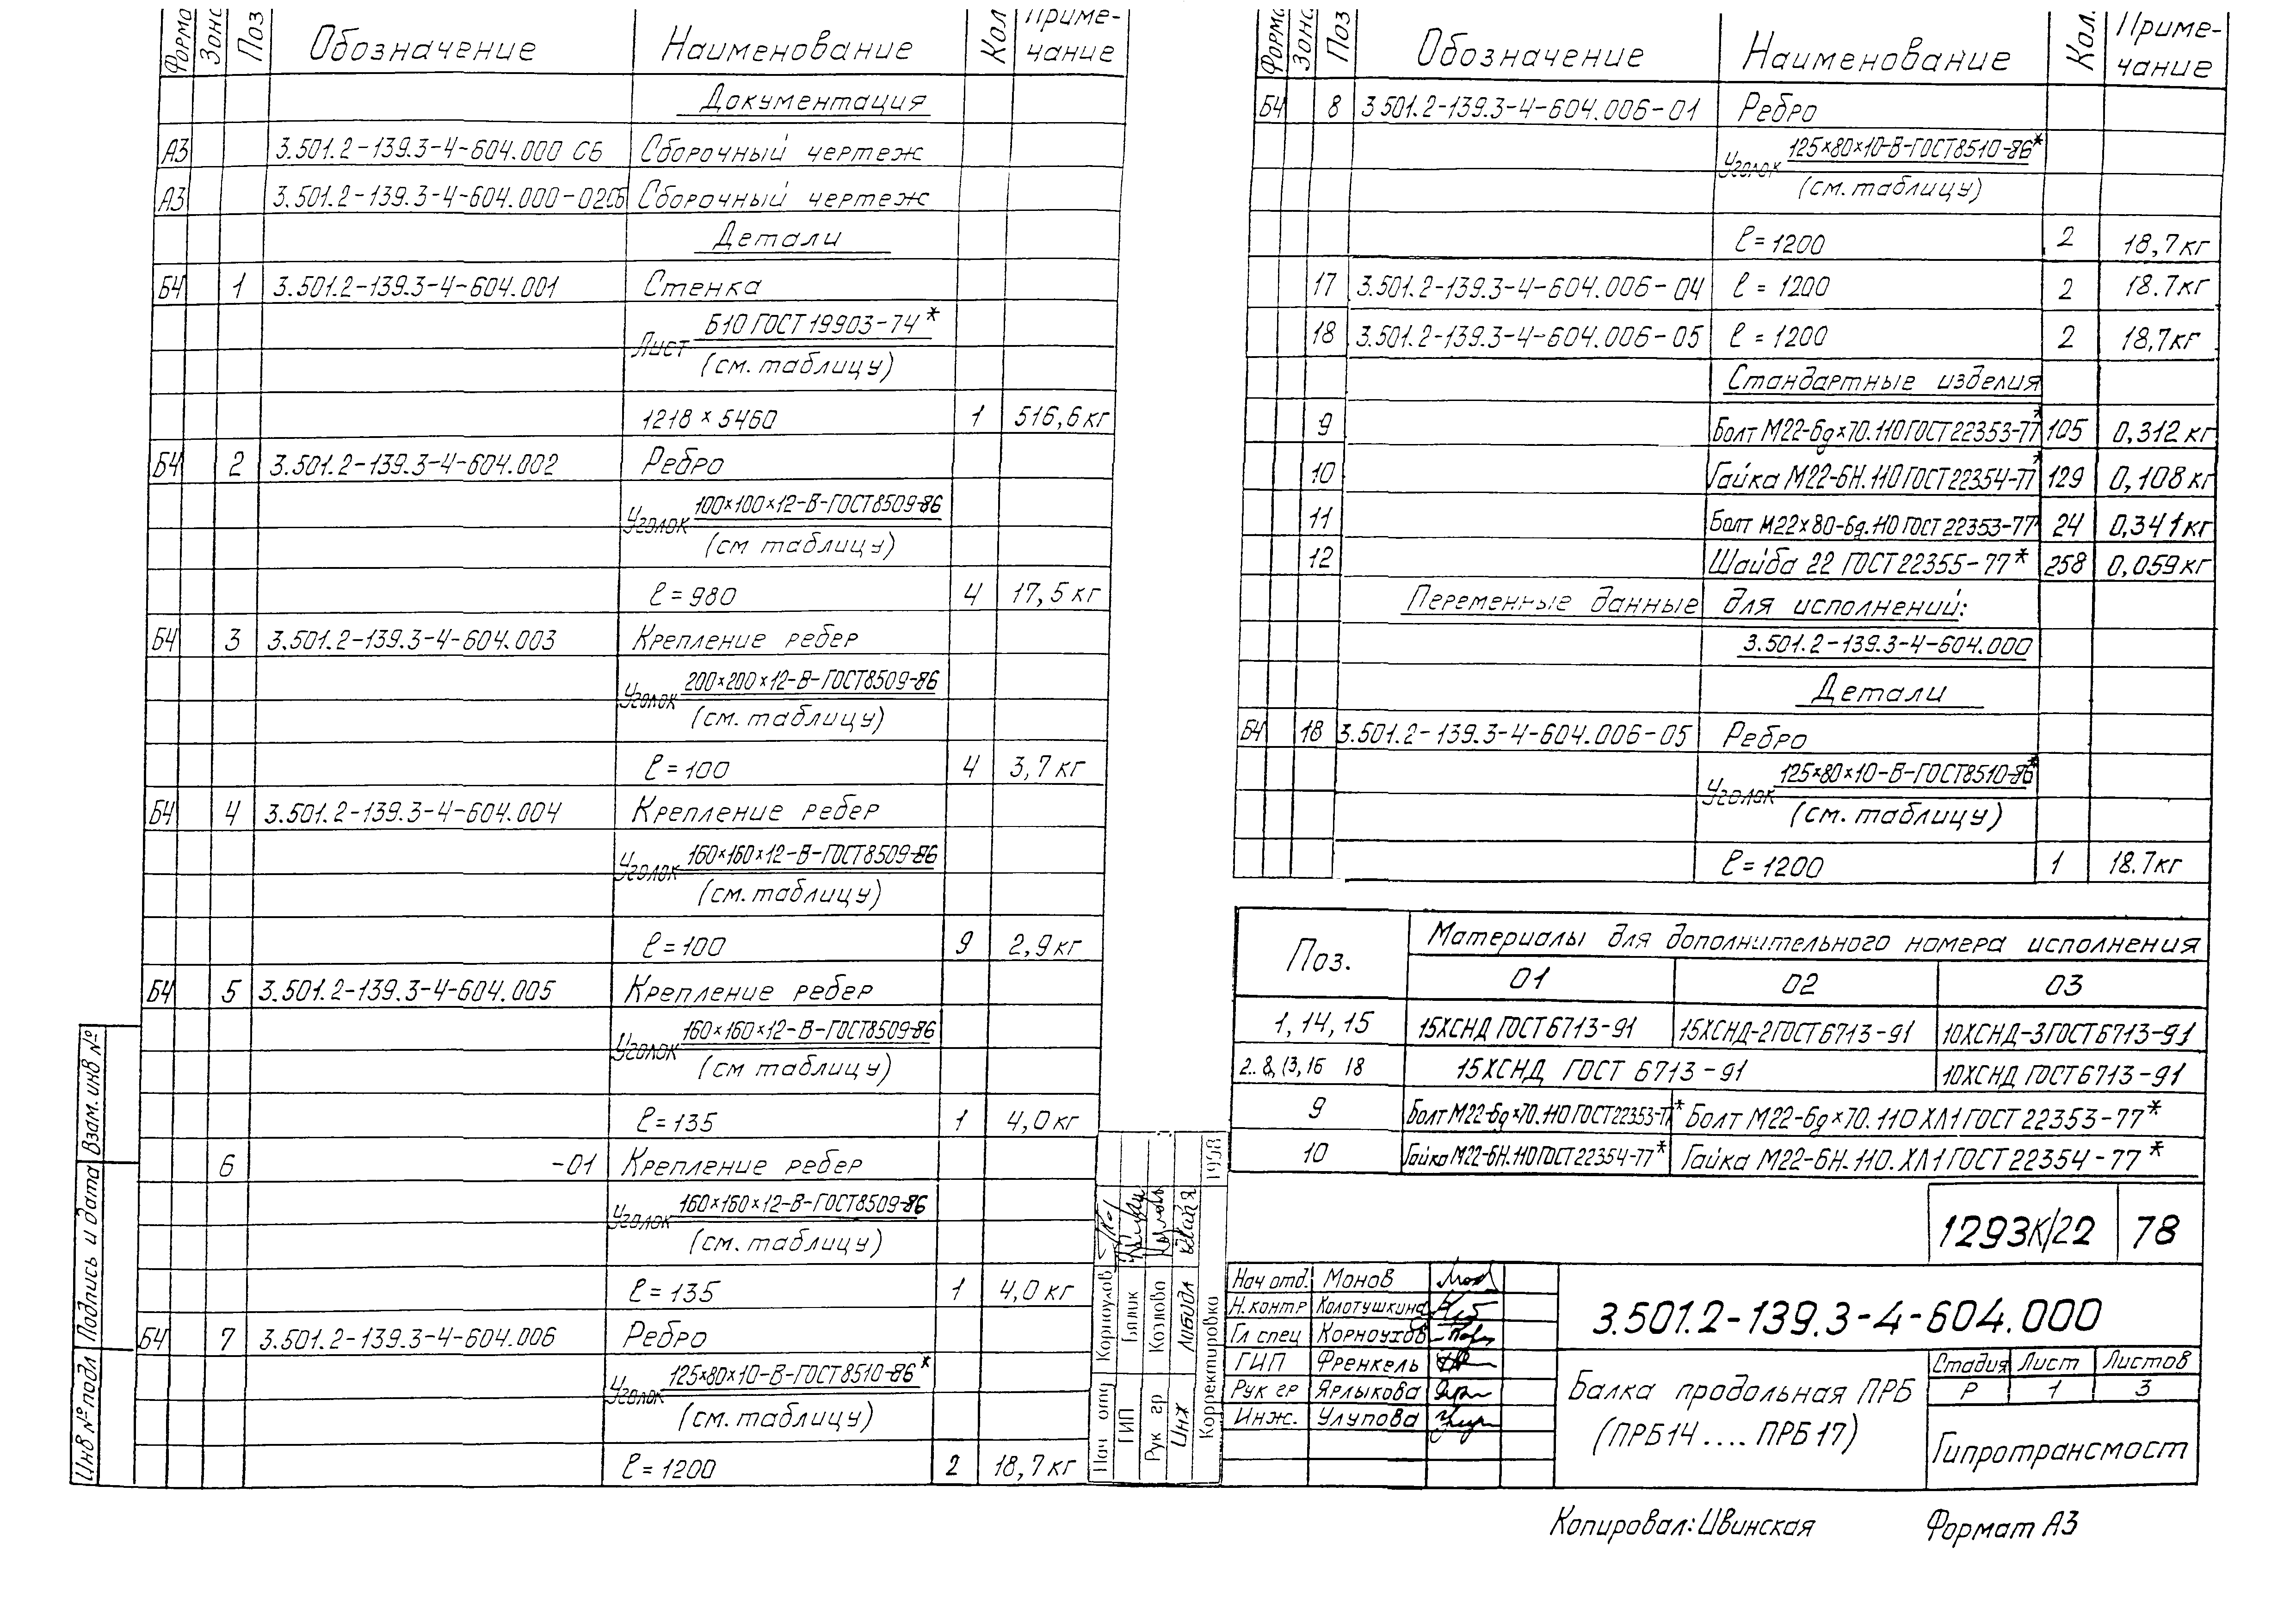 Форма Зона Поз Обозначение Наименование Кол Приме-
чание
Документация
А3 3.501.2-139.3-4-604.000 СБ Сборочный чертеж
А3 3.501.2-139.3-4-604.000-02СБ Сборочный чертеж
Детали
Б4 1 3.501.2-139.3-4-604.001 Стенка
Лист Б10 ГОСТ 19903-74*
(см. таблицу)
1218 × 5460 1 516,6 кг
Б4 2 3.501.2-139.3-4-604.002 Ребро
Уголок 100×100×12-В-ГОСТ8509-86
(см таблицу)
ℓ = 980 4 17,5 кг
Б4 3 3.501.2-139.3-4-604.003 Крепление ребер
Уголок 200×200×12-В-ГОСТ8509-86
(см. таблицу)
ℓ = 100 4 3,7 кг
Б4 4 3.501.2-139.3-4-604.004 Крепление ребер
Уголок 160×160×12-В-ГОСТ8509-86
(см. таблицу)
ℓ = 100 9 2,9 кг
Б4 5 3.501.2-139.3-4-604.005 Крепление ребер
Уголок 160×160×12-В-ГОСТ8509-86
(см таблицу)
ℓ = 135 1 4,0 кг
6 -01 Крепление ребер
Уголок 160×160×12-В-ГОСТ8509-86
(см. таблицу)
ℓ = 135 1 4,0 кг
Б4 7 3.501.2-139.3-4-604.006 Ребро
Уголок 125×80×10-В-ГОСТ8510-86*
(см. таблицу)
ℓ = 1200 2 18,7 кг
Инв № подл Подпись и дата Взам. инв №
Форма Зона Поз Обозначение Наименование Кол. Приме-
чание
Б4 8 3.501.2-139.3-4-604.006-01 Ребро
Уголок 125×80×10-В-ГОСТ8510-86*
(см. таблицу)
ℓ = 1200 2 18,7 кг
17 3.501.2-139.3-4-604.006-04 ℓ = 1200 2 18.7 кг
18 3.501.2-139.3-4-604.006-05 ℓ = 1200 2 18,7 кг
Стандартные изделия
9 Болт М22-6g×70.110 ГОСТ 22353-77* 105 0,312 кг
10 Гайка М22-6Н.110 ГОСТ 22354-77* 129 0,108 кг
11 Болт М22×80-6g.110 ГОСТ 22353-77* 24 0,341 кг
12 Шайба 22 ГОСТ 22355-77* 258 0,059 кг
Переменные данные для исполнений:
3.501.2-139.3-4-604.000
Детали
Б4 18 3.501.2-139.3-4-604.006-05 Ребро
Уголок 125×80×10-В-ГОСТ8510-86*
(см. таблицу)
ℓ = 1200 1 18.7 кг
Поз. Материалы для дополнительного номера исполнения
01 02 03
1, 14, 15 15ХСНД ГОСТ 6713-91 15ХСНД-2 ГОСТ 6713-91 10ХСНД-3 ГОСТ 6713-91
2..8, 13, 16 18 15ХСНД ГОСТ 6713-91 10ХСНД ГОСТ 6713-91
9 Болт М22-6g×70.110 ГОСТ 22353-77* Болт М22-6g×70.110 ХЛ1 ГОСТ 22353-77*
10 Гайка М22-6Н.110 ГОСТ 22354-77* Гайка М22-6Н.110.ХЛ1 ГОСТ 22354-77*
1293К/22 78
Нач отд Корноухов
ГИП
Рук гр Козлова
Инж
Корректировка 1998
Нач отд. Монов
Н.контр Колотушкина
Гл спец Корноухов
ГИП Френкель
Рук гр Ярлыкова
Инж. Улупова
3.501.2-139.3-4-604.000
Балка продольная ПРБ
(ПРБ14 .... ПРБ17)
Стадия Лист Листов
Р 1 3
Гипротрансмост
Копировал: Ивинская Формат А3